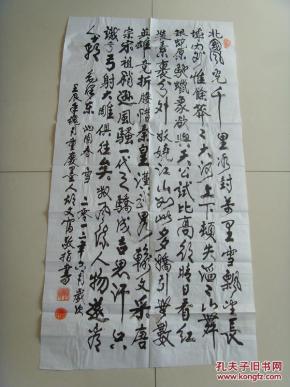 北國風光千里冰封萬里雪飄望長
城内外惟餘莽之大河上下頓失滔之山舞
銀蛇原馳蠟象欲與天公試比高須晴日看红
装素裹分外妖娆江山如此多嬌引無數
英雄竞折腰惜秦皇漢武畧輸文采唐
宗宋祖稍遜風騷一代天驕成吉思汗只
識弯弓射大雕俱往矣数風流人物還看
今朝 毛澤東 沁園春 雪 二零一二年六月
壬辰年 重慶 書